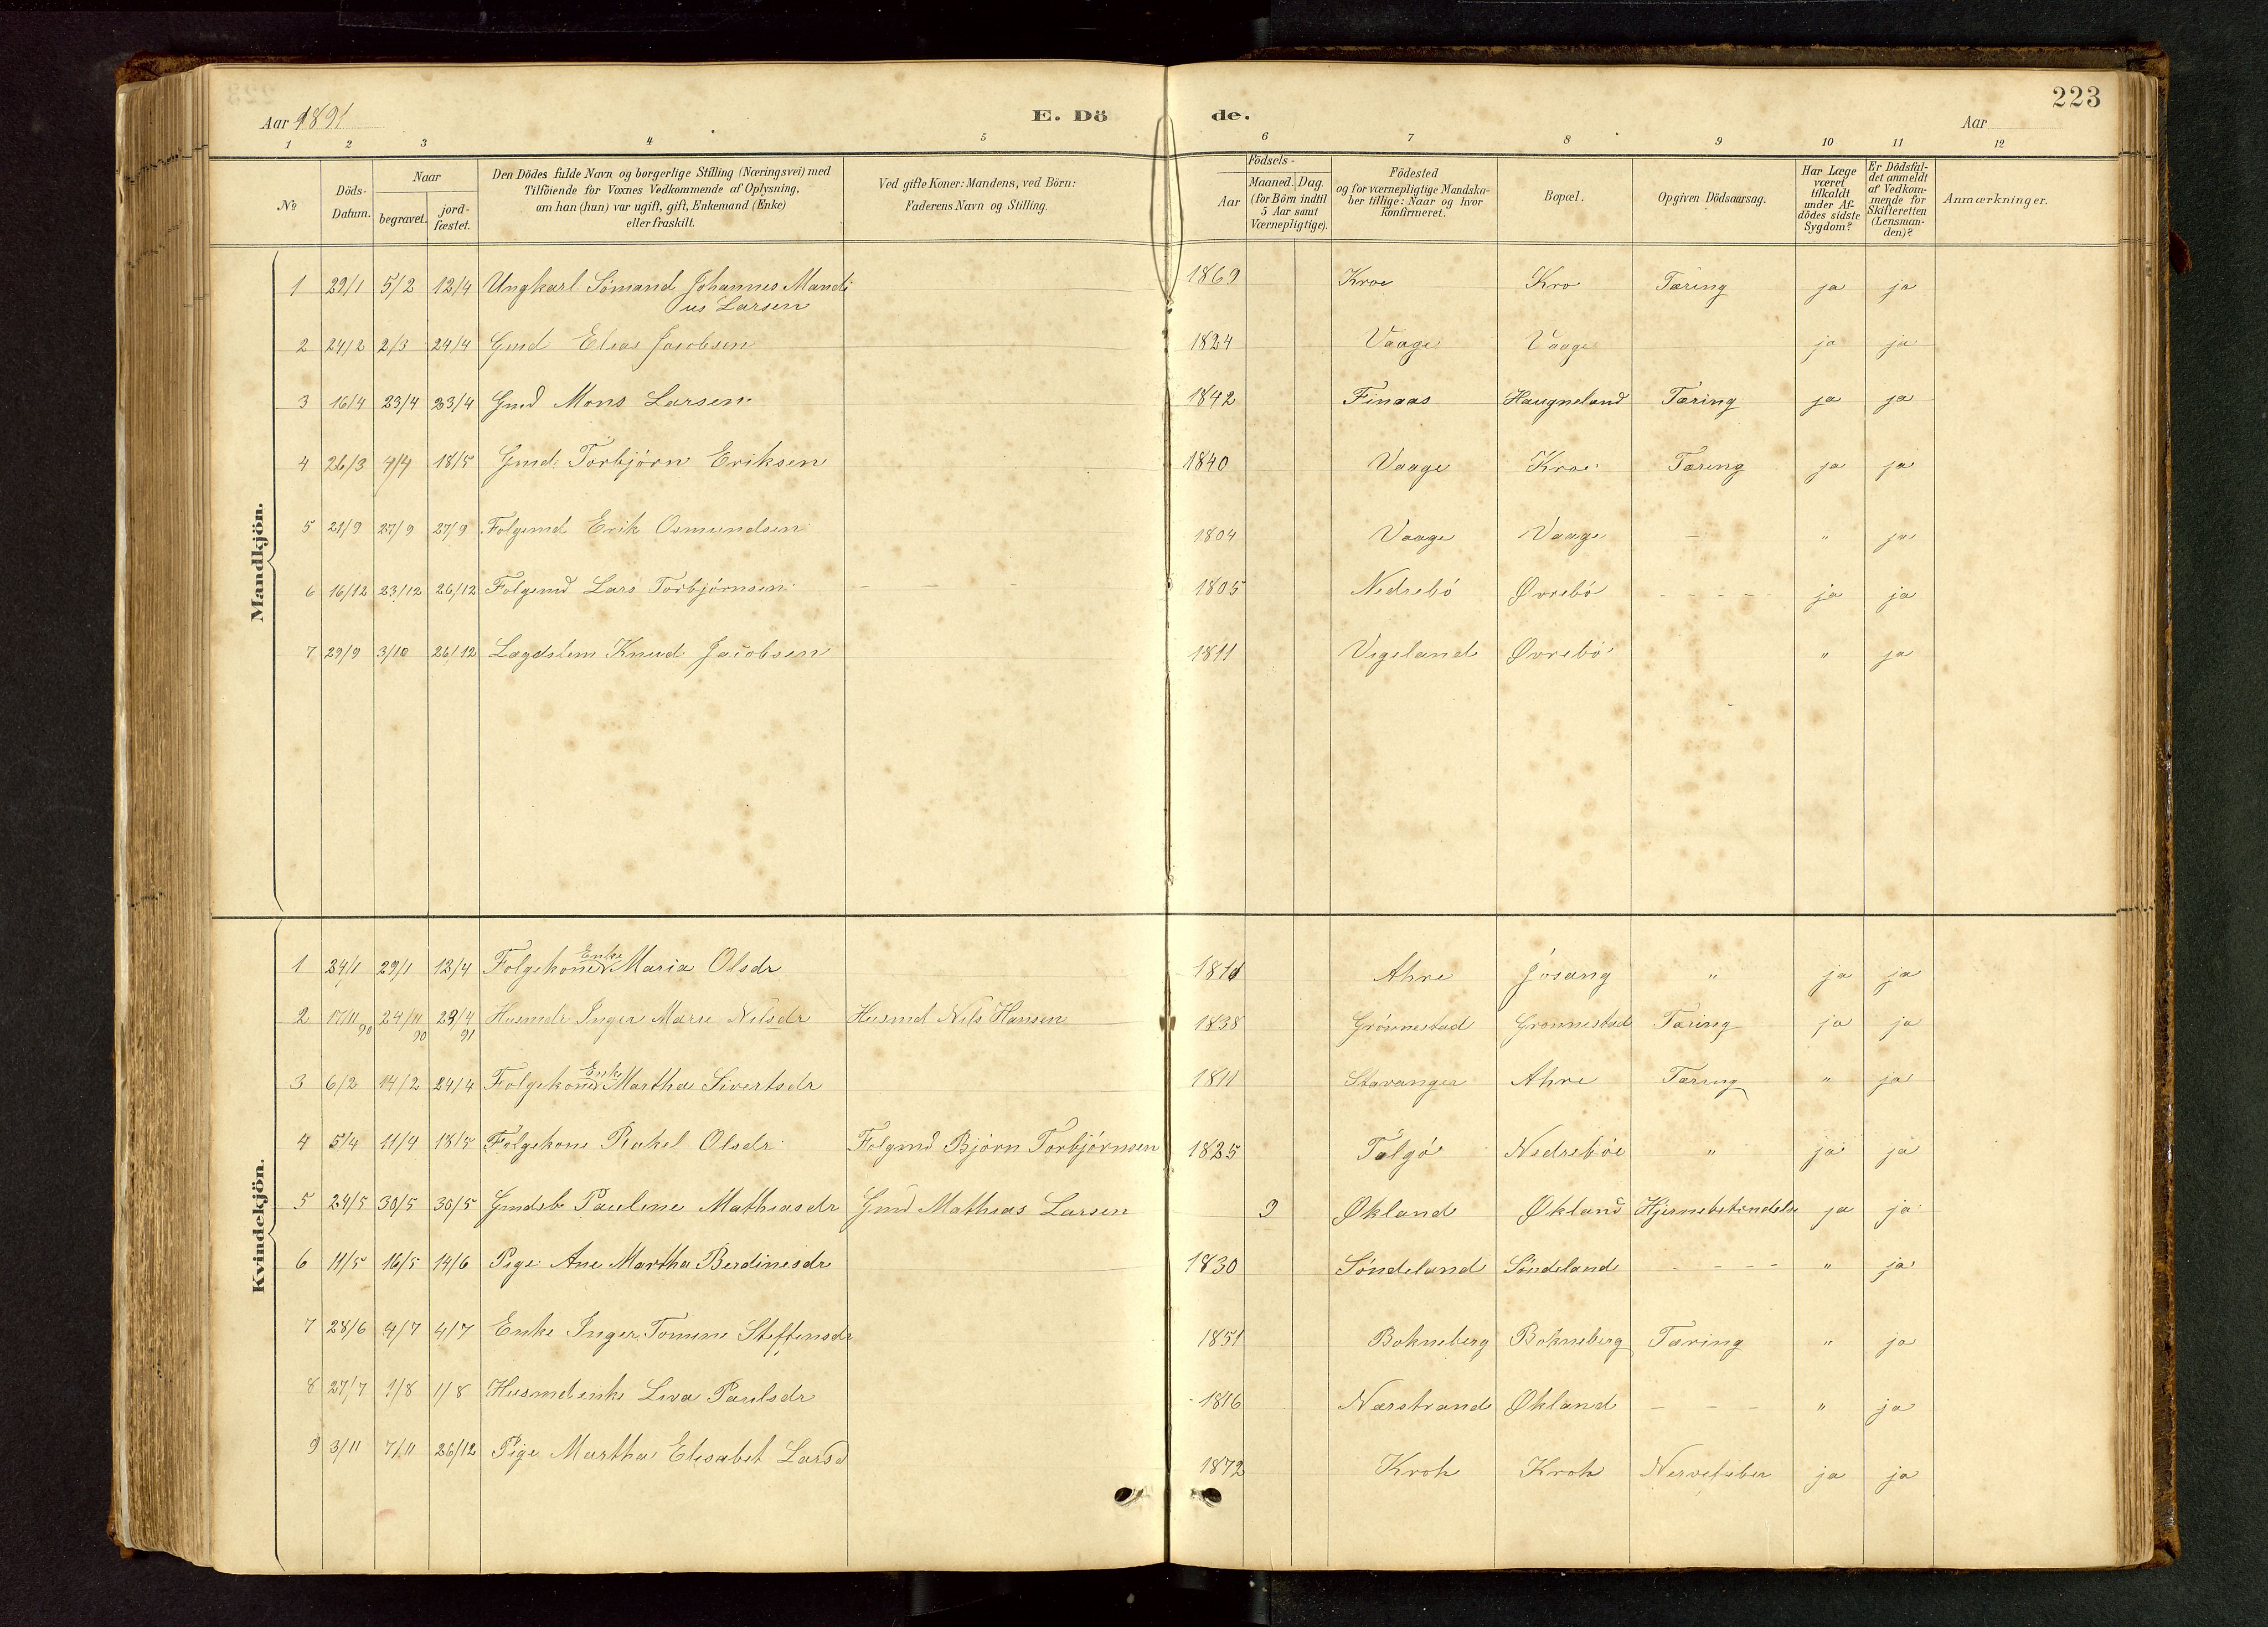 223
Aar 1891
E. Dö
de.
Aar
1 2 3 4 5 6 7 8 9 10 11 12
No
Döds-
Datum.
Naar
begravet.
jord-
fæstet.
Den Dödes fulde Navn og borgerlige Stilling (Næringsvei) med
Tilföiende for Voxnes Vedkommende af Oplysning,
om han (hun) var ugift, gift, Enkemand (Enke)
eller fraskilt.
Ved gifte Koner: Mandens, ved Börn:
Faderens Navn og Stilling.
Födsels-
Aar
Maaned. Dag.
(for Börn indtil
5 Aar samt
Værnepligtige).
Födested
og for værnepligtige Mandska-
ber tillige: Naar og hvor
konfirmeret.
Bopæl.
Opgiven Dödsaarsag.
Har Læge
været
tilkaldt
under Af-
dödes sidste
Sygdom?
Er Dödsfal-
det anmeldt
af Vedkom-
mende for
Skifteretten
(Lensman-
den)?
Anmærkninger.
Mandkjön.
1 29/1 5/2 12/4 Ungkarl Sömand Johannes Mandi
us Larsen 1869 Kroe Kro Tæring ja ja
2 24/2 2/3 24/4 Gmd Elias Jacobsen 1824 Vaage Vaage ja ja
3 16/4 23/4 23/4 Gmd Mons Larsen 1842 Finaas Haugneland Tæring ja ja
4 26/3 4/4 18/5 Gmd. Torbjörn Eriksen 1840 Vaage Kroe Tæring ja ja
5 21/9 27/9 27/9 Folgemd Erik Osmundsen 1804 Vaage Vaage - " ja
6 16/12 23/12 26/12 Folgemd Lars Torbjörnsen - - - 1805 Nedrebö Øvrebö - - - - - ja ja
7 29/9 3/10 26/12 Lægdslem Knud Jacobsen 1811 Vigeland Øvrebö " ja
Kvindekjön.
1 24/1 29/1 12/4 Folgekone Enke Maria Olsdr 1811 Ahre Jösang " ja ja
2 17/11 90 24/11 90 29/4 91 Husmdr Inger Marie Nilsdr Husmd Nils Hansen 1838 Grönnestad Gronnestad Tæring ja ja
3 6/2 14/2 24/4 Folgekone Enke Martha Sivertsdr 1811 Stavanger Ahre Tæring " ja
4 5/4 11/4 18/5 Folgekone Rakel Olsdr Folgmd Björn Torbjörnsen 1825 Talgö Nedreböe " ja ja
5 24/5 30/5 30/5 Gmdsb Pauline Mathiasdr Gmd Mathias Larsen 9 Økland Økland Hjernebetændelse ja ja
6 11/5 16/5 14/6 Pige Ane Martha Berdinesdr 1830 Söndeland Söndeland - - - - " ja
7 28/6 4/7 4/7 Enke Inger Tomine Steffensdr 1851 Bokneberg Bokneberg Tæring " ja
8 27/7 1/8 1/8 Husmdenke Liva Paulsdr 1816 Nærstrand Økland - - - " ja
9 3/11 7/11 26/12 Pige Martha Elisabet Larsd 1872 Kroh Kroh Nervefeber ja ja